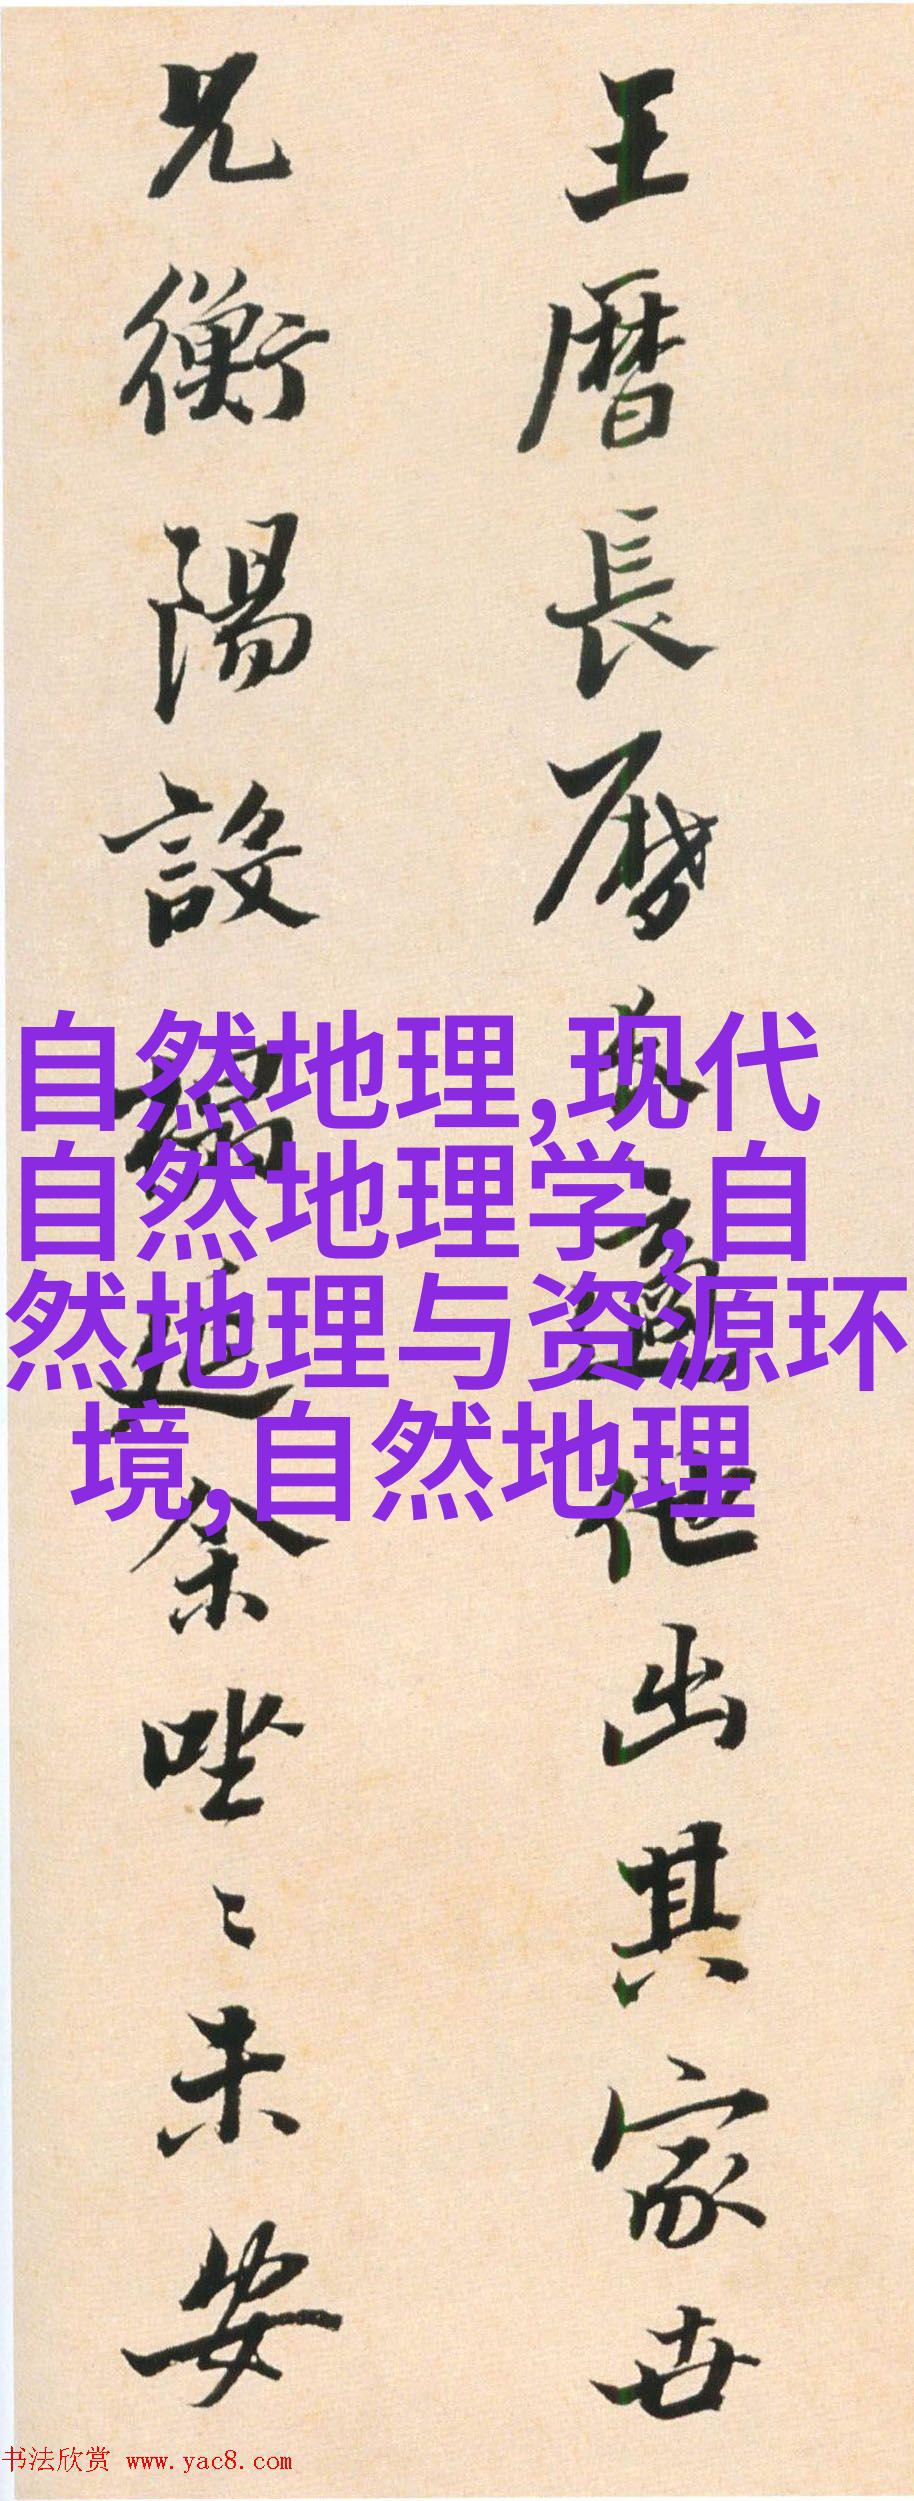 王曆長曆
適他出其家廿
兄衡陽設
祭唑〻未安
自然地理,现代
自然地理学,自
然地理与资源环
境,自然地理
书法欣赏 www.yac8.com